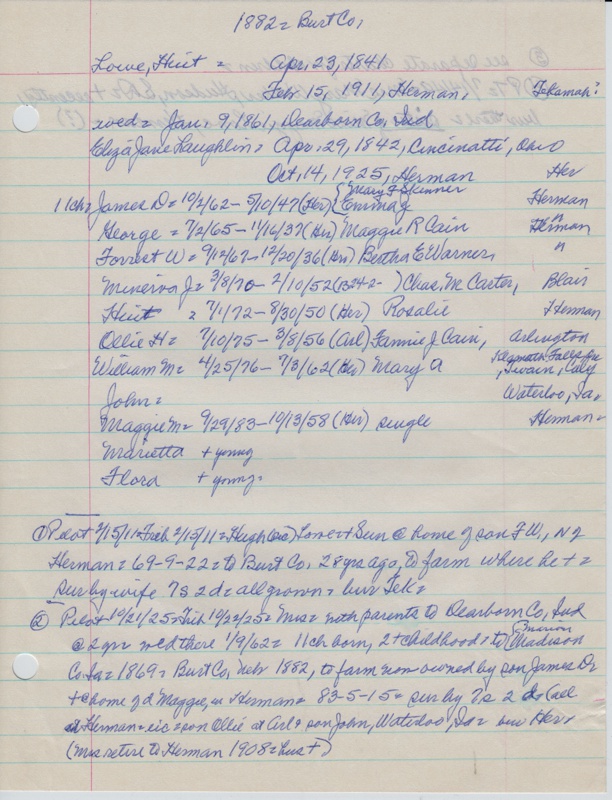 1882 = Burt Co.
Lowe, Hiet = Apr. 23, 1841
Feb 15, 1911, Herman, Tekamah?
wed = Jan. 9, 1861, Dearborn Co, Ind
Eliza Jane Laughlin = Apr. 29, 1842, Cincinatti, Ohio
Oct, 14, 1925, Herman Her
Mary F Skinner
11 ch = James D = 10/2/62 - 5/10/47 (Her) { Emma J Herman
George = 7/2/65 - 1/16/37 (Her) Maggie R Cain Herman
Forrest W = 9/12/67 - 12/20/36 (Her) Bertha E Warner, "
Minerva J = 3/8/70 - 2/10/52 (B242- ) Chas. M Carter, Blair
Hiet = 7/1/72 - 8/30/50 (Her) Rosalie Herman
Ollie H = 7/10/75 - 3/8/56 (Arl) Fannie J Cain, Arlington
Klamath Falls, Ore
William M = 4/25/76 - 7/3/62 (Her) Mary A , Twain, Caly
John = Waterloo, Ia.
Maggie M = 9/29/83 - 10/13/58 (Her) single Herman =
Marietta + young
Flora + young =
① Pilot 2/15/11 = Trib 2/15/11 = Hugh (sic) Lowe + Sun @ home of son F W., N of
Herman = 69-9-22 = to Burt Co, 28 yrs ago, to farm where he + =
sur by wife 7s 2d = all grown = bur Tek =
② Pilot 10/21/25 = Trib 10/22/25 = Mrs = with parents to Dearborn Co, Ind
@ 2 yr = wed there 1/9/62 = 11 ch born, 2 + childhood = to Madison
Marion
Co. Ia = 1869 = Burt Co, Nebr 1882, to farm now owned by son James D =
+ @ home of d Maggie, in Herman = 83-5-15 = sur by 7s 2 d (all
Herman = exc = son Ollie at Arl + son John, Waterloo, Ia = bur Her =
(Mrs retire to Herman 1908 = hus +)